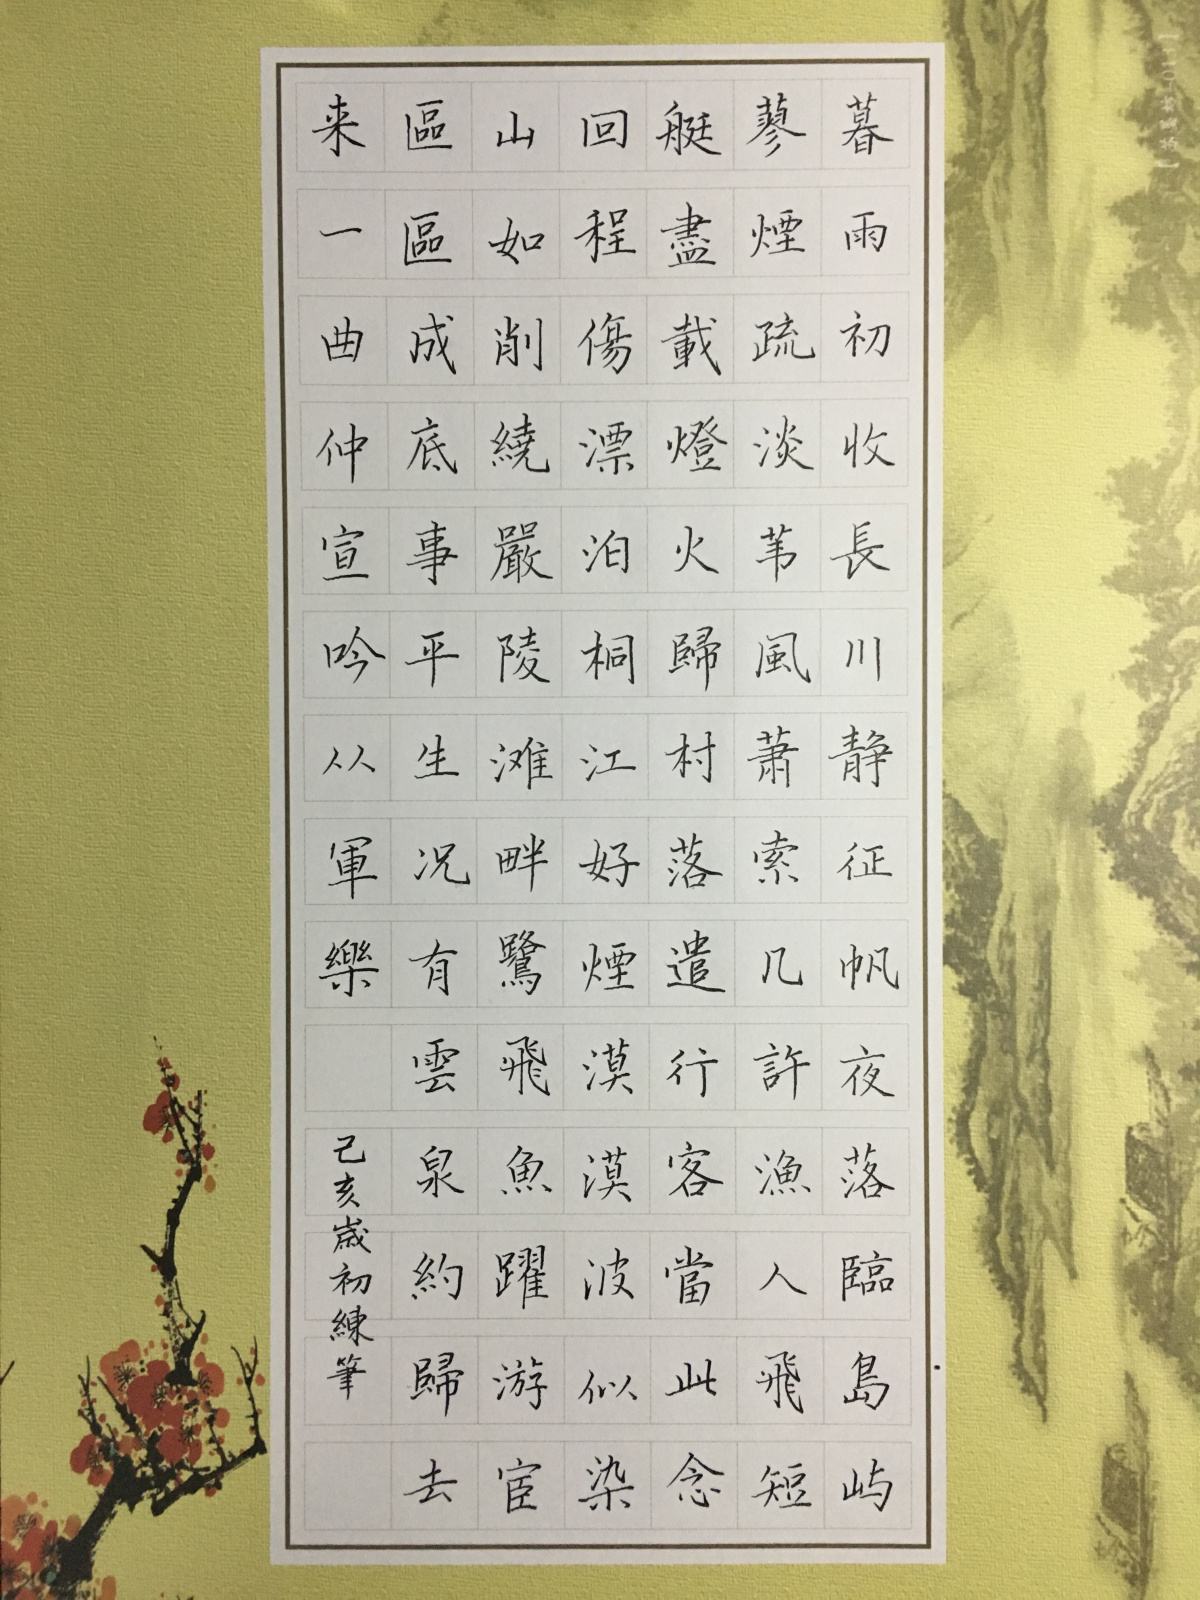 暮雨初收長川静征帆夜落臨島屿
蓼煙疏淡苇風萧索几許漁人飛短
艇盡載燈火歸村落遣行客當此念
回程傷漂泊桐江好煙漠漠波似染
山如削繞嚴陵滩畔鷺飛魚躍游宦
區區成底事平生况有雲泉約歸去
来一曲仲宣吟从軍樂
己亥歲初練筆